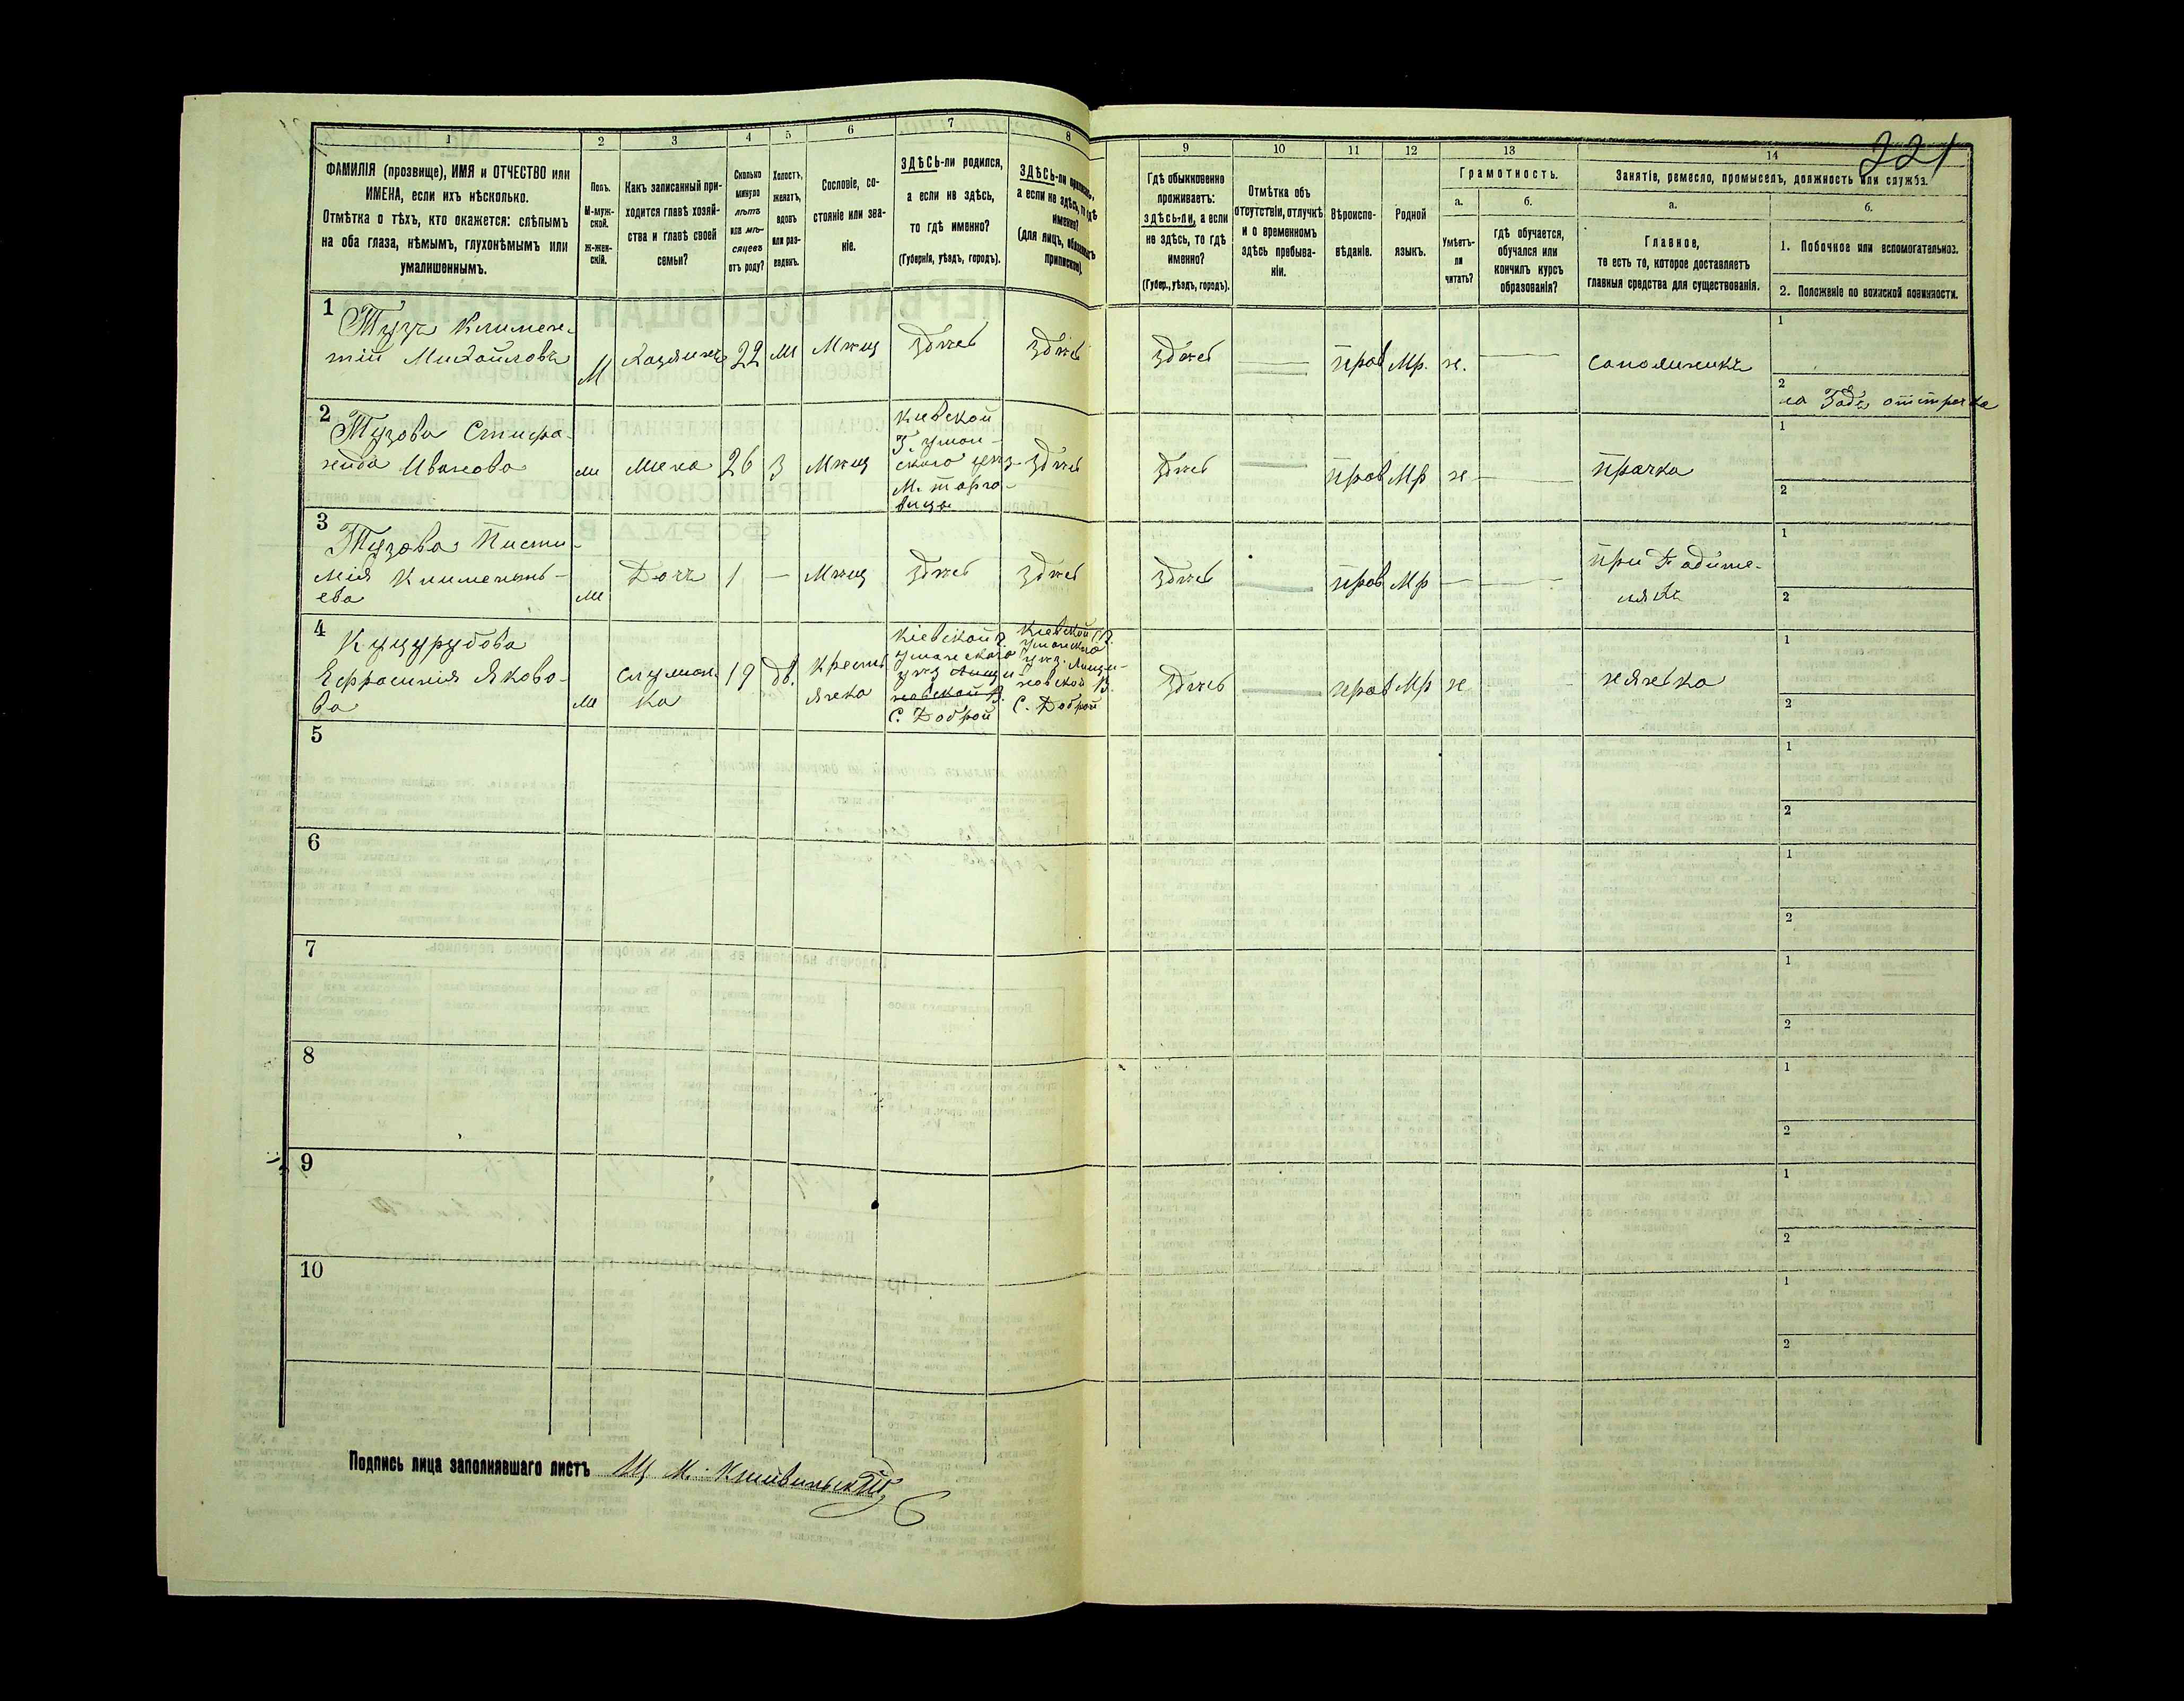 221
1 2 3 4 5 6 7 8 9 10 11 12 13 14
ФАМИЛІЯ (прозвище), ИМЯ и ОТЧЕСТВО или
ИМЕНА, если ихъ нѣсколько.
Отмѣтка о тѣхъ, кто окажется: слѣпымъ
на оба глаза, нѣмымъ, глухонѣмымъ или
умалишеннымъ.
Полъ.
М-муж-
ской.
Ж-жен-
скій.
Какъ записанный при-
ходится главѣ хозяй-
ства и главѣ своей
семьи?
Сколько
минуло
лѣтъ
или мѣ-
сяцевъ
отъ роду?
Холостъ,
женатъ,
вдовъ
или раз-
веденъ.
Сословіе, со-
стояніе или зва-
ніе.
ЗДѢСЬ-ли родился,
а если не здѣсь,
то гдѣ именно?
(Губернія, уѣздъ, городъ).
ЗДѢСЬ-ли
а если не здѣсь, то гдѣ
именно?
(для лицъ,
Гдѣ обыкновенно
проживаетъ:
здѣсь-ли, а если
не здѣсь, то гдѣ
именно?
(Губер., уѣздъ, городъ).
Отмѣтка объ
отсутствіи, отлучкѣ
и о временномъ
здѣсь пребыва-
ніи.
Вѣроиспо-
вѣданіе.
Родной
языкъ.
Грамотность.
а.
Умѣетъ-
ли
читать?
б.
гдѣ обучается,
обучался или
кончилъ курсъ
образованія?
Занятіе, ремесло, промыселъ, должность или служба.
а.
Главное,
то есть то, которое доставляетъ
главныя средства для существованія.
б.
1. Побочное или вспомогательное.
2. Положеніе по воинской повинности.
1
Тузъ Климен-
тій Михайловъ
М
Хозяинъ
22
Мѣщ
Здѣсь
Здѣсь
Здѣсь
прав
Мр.
н.
сапожникъ
1
2
2
Тузова
Иванова
Жена
26
З
Мѣщ
Кіевской
Г. Уман-
ского уѣз-
М. Торго-
вица
Здѣсь
Здѣсь
прав
Мр
н
прачка
1
2
3
Тузова
Климентъ-
ева
Дочь
1
—
Мѣщ
Здѣсь
Здѣсь
Здѣсь
прав
Мр
—
при Родите-
ляхъ
1
2
4
Куцурубова
Ефросинія Яково-
ва
Ж
Служан-
ка
19
дѣ.
Кресть
янка
Кіевской г.
Уманского
уѣз
С. Доброй
Кіевской
Уманского
уѣз.
С. Доброй
Здѣсь
прав
Мр
н
нянька
1
2
5
1
2
6
1
2
7
1
2
8
1
2
9
1
2
10
1
2
Подпись лица заполнявшаго листъ